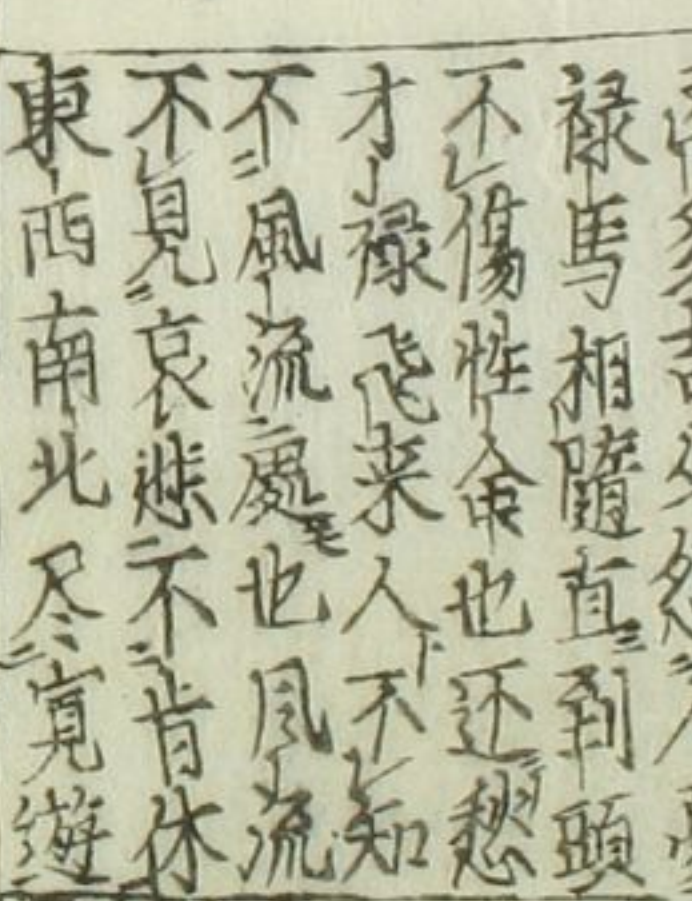 禄馬相隨直到頭
不傷性命也还愁
才禄飛来人不知
不風流處也風流
不見哀悲不肯休
東西南北尽寛遊